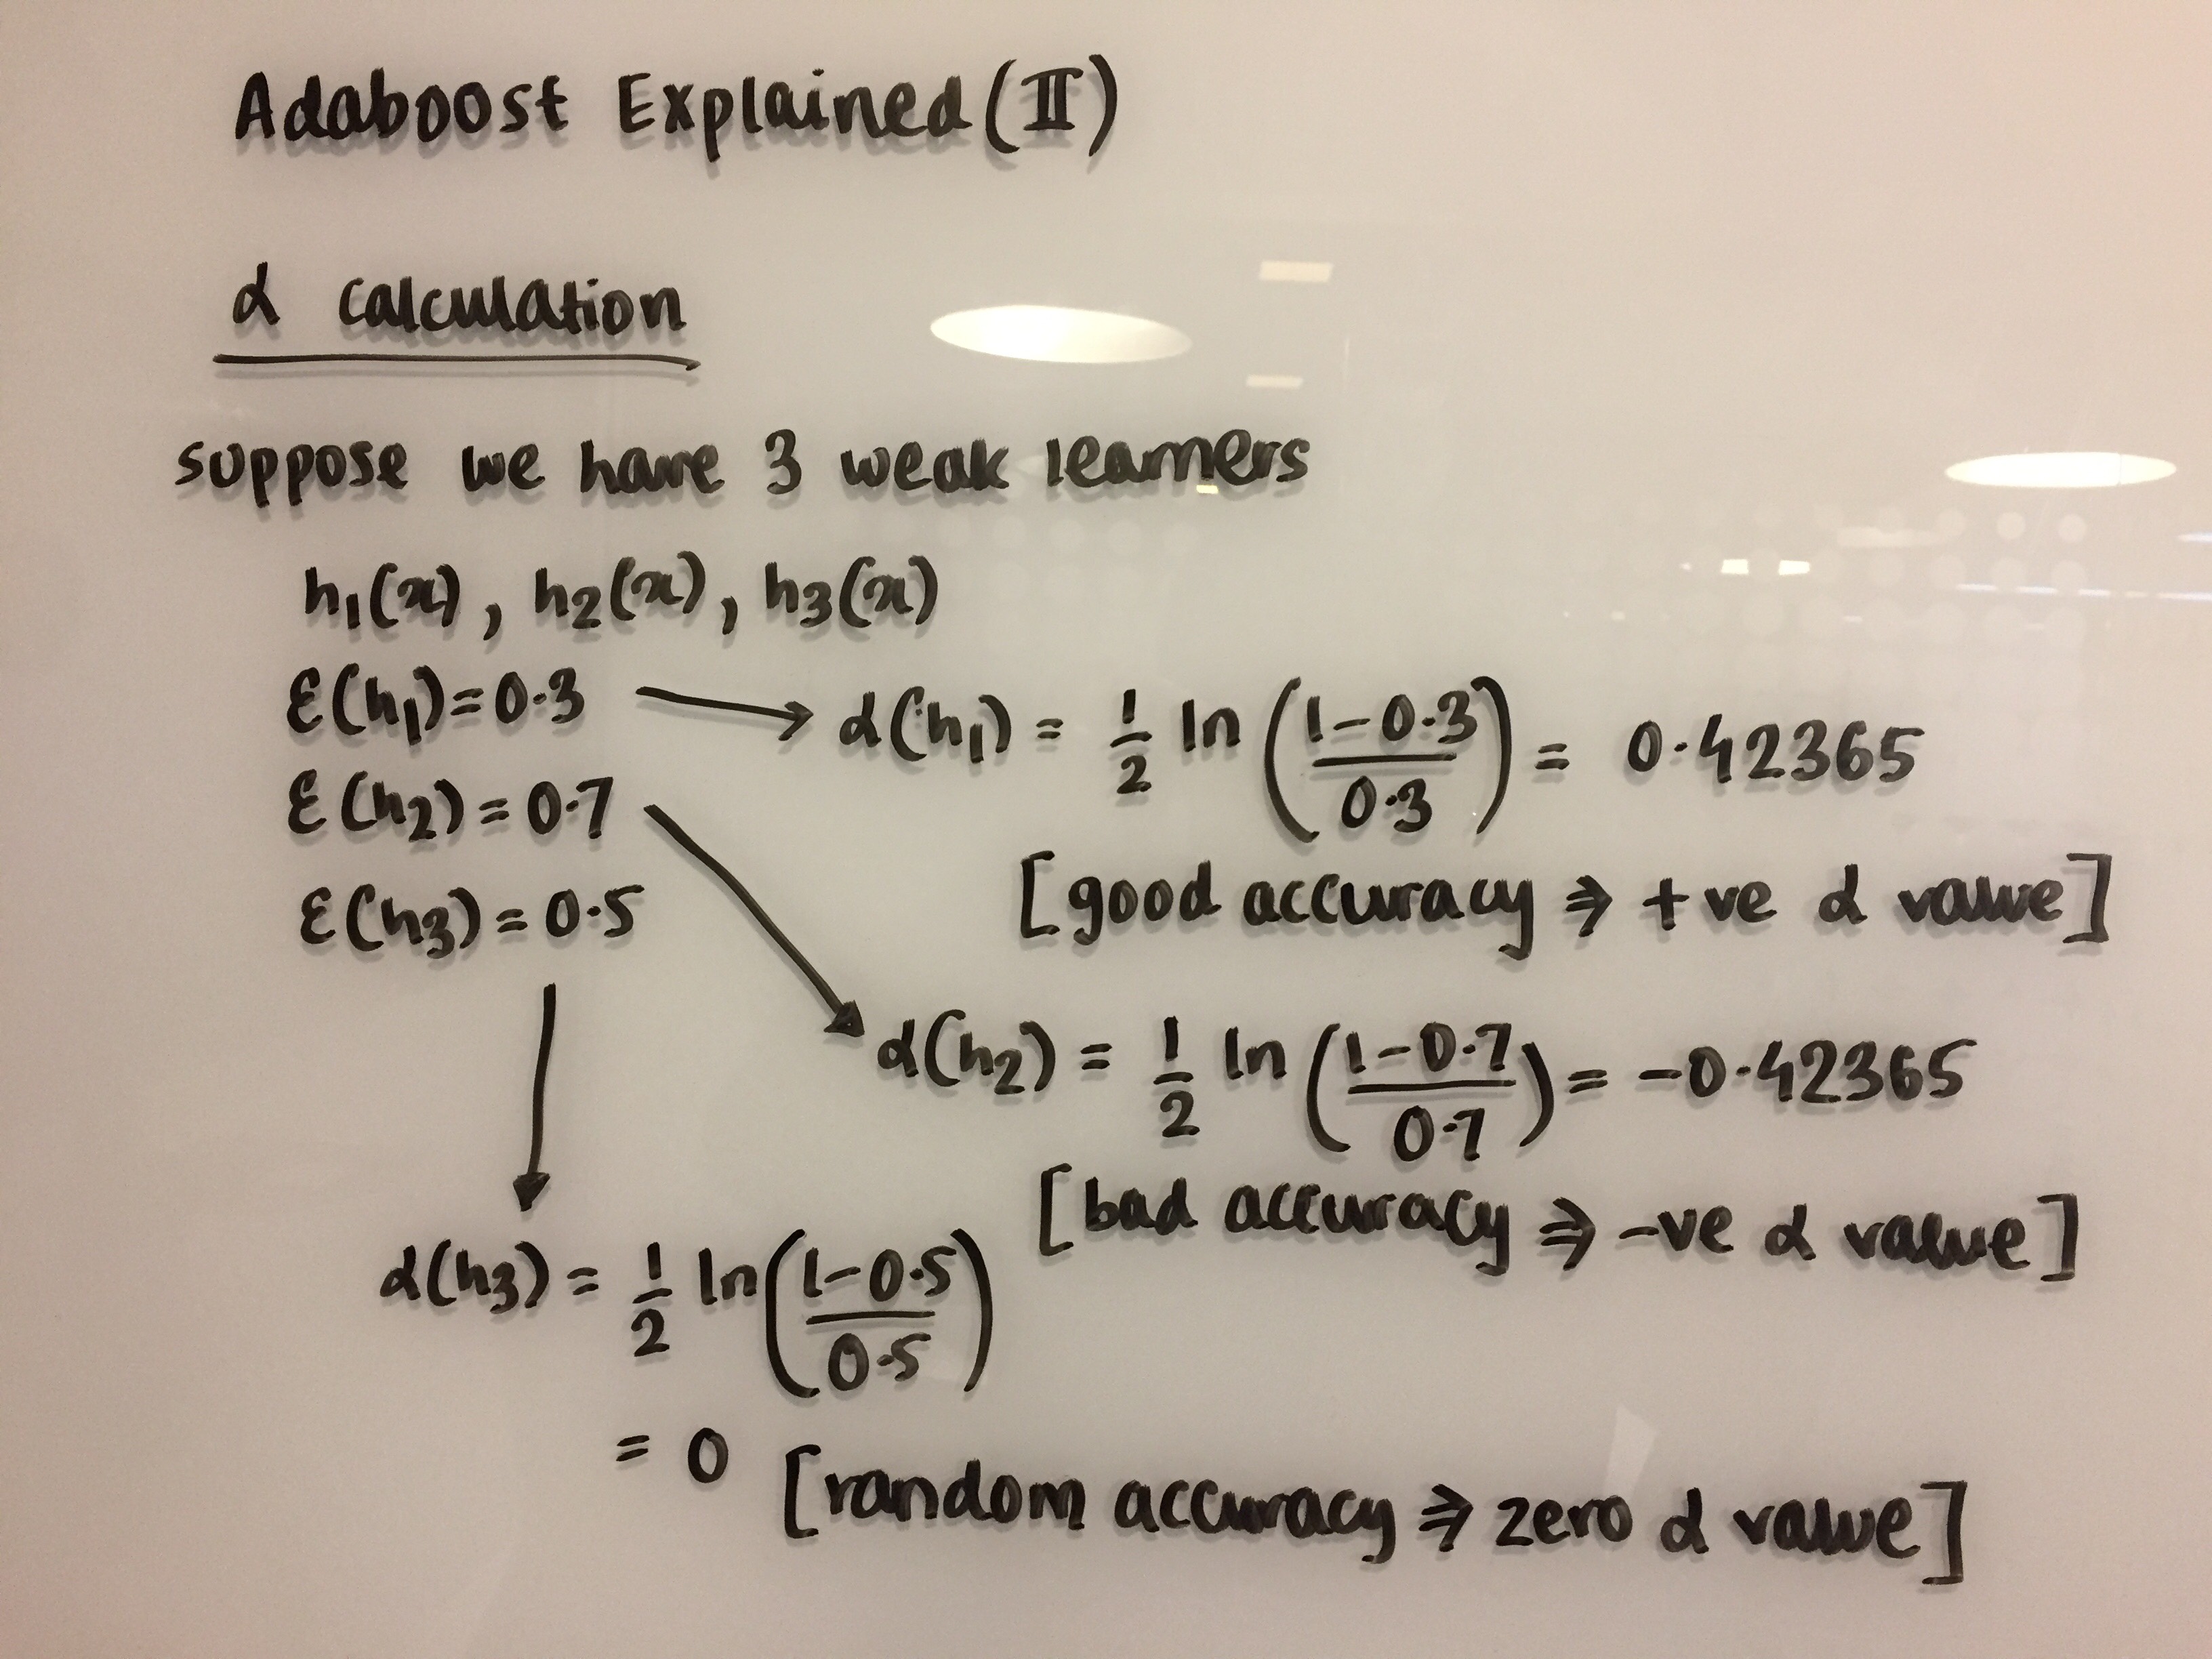 Adaboost Explained (II)
α calculation
suppose we have 3 weak learners
h1(x), h2(x), h3(x)
ε(h1)=0.3 → α(h1) = 1/2 ln((1-0.3)/0.3) = 0.42365
[good accuracy ⇒ +ve α value]
ε(h2)=0.7 → α(h2) = 1/2 ln((1-0.7)/0.7) = -0.42365
[bad accuracy ⇒ -ve α value]
ε(h3)=0.5
α(h3) = 1/2 ln((1-0.5)/0.5)
= 0 [random accuracy ⇒ zero α value]